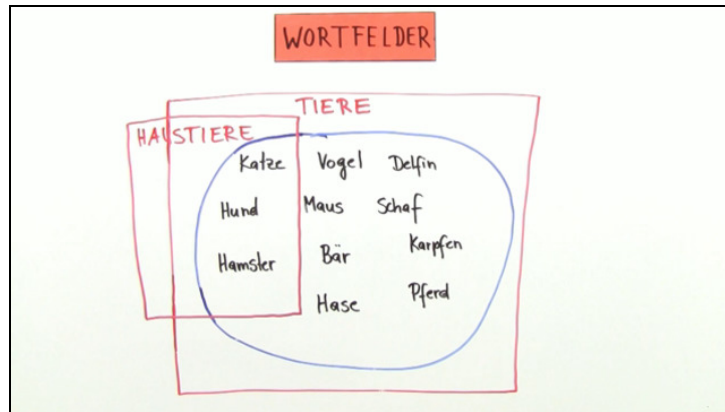 WORTFELDER
TIERE
HAUSTIERE
Katze Vogel Delfin
Hund Maus Schaf
Hamster Bär Karpfen
Hase Pferd